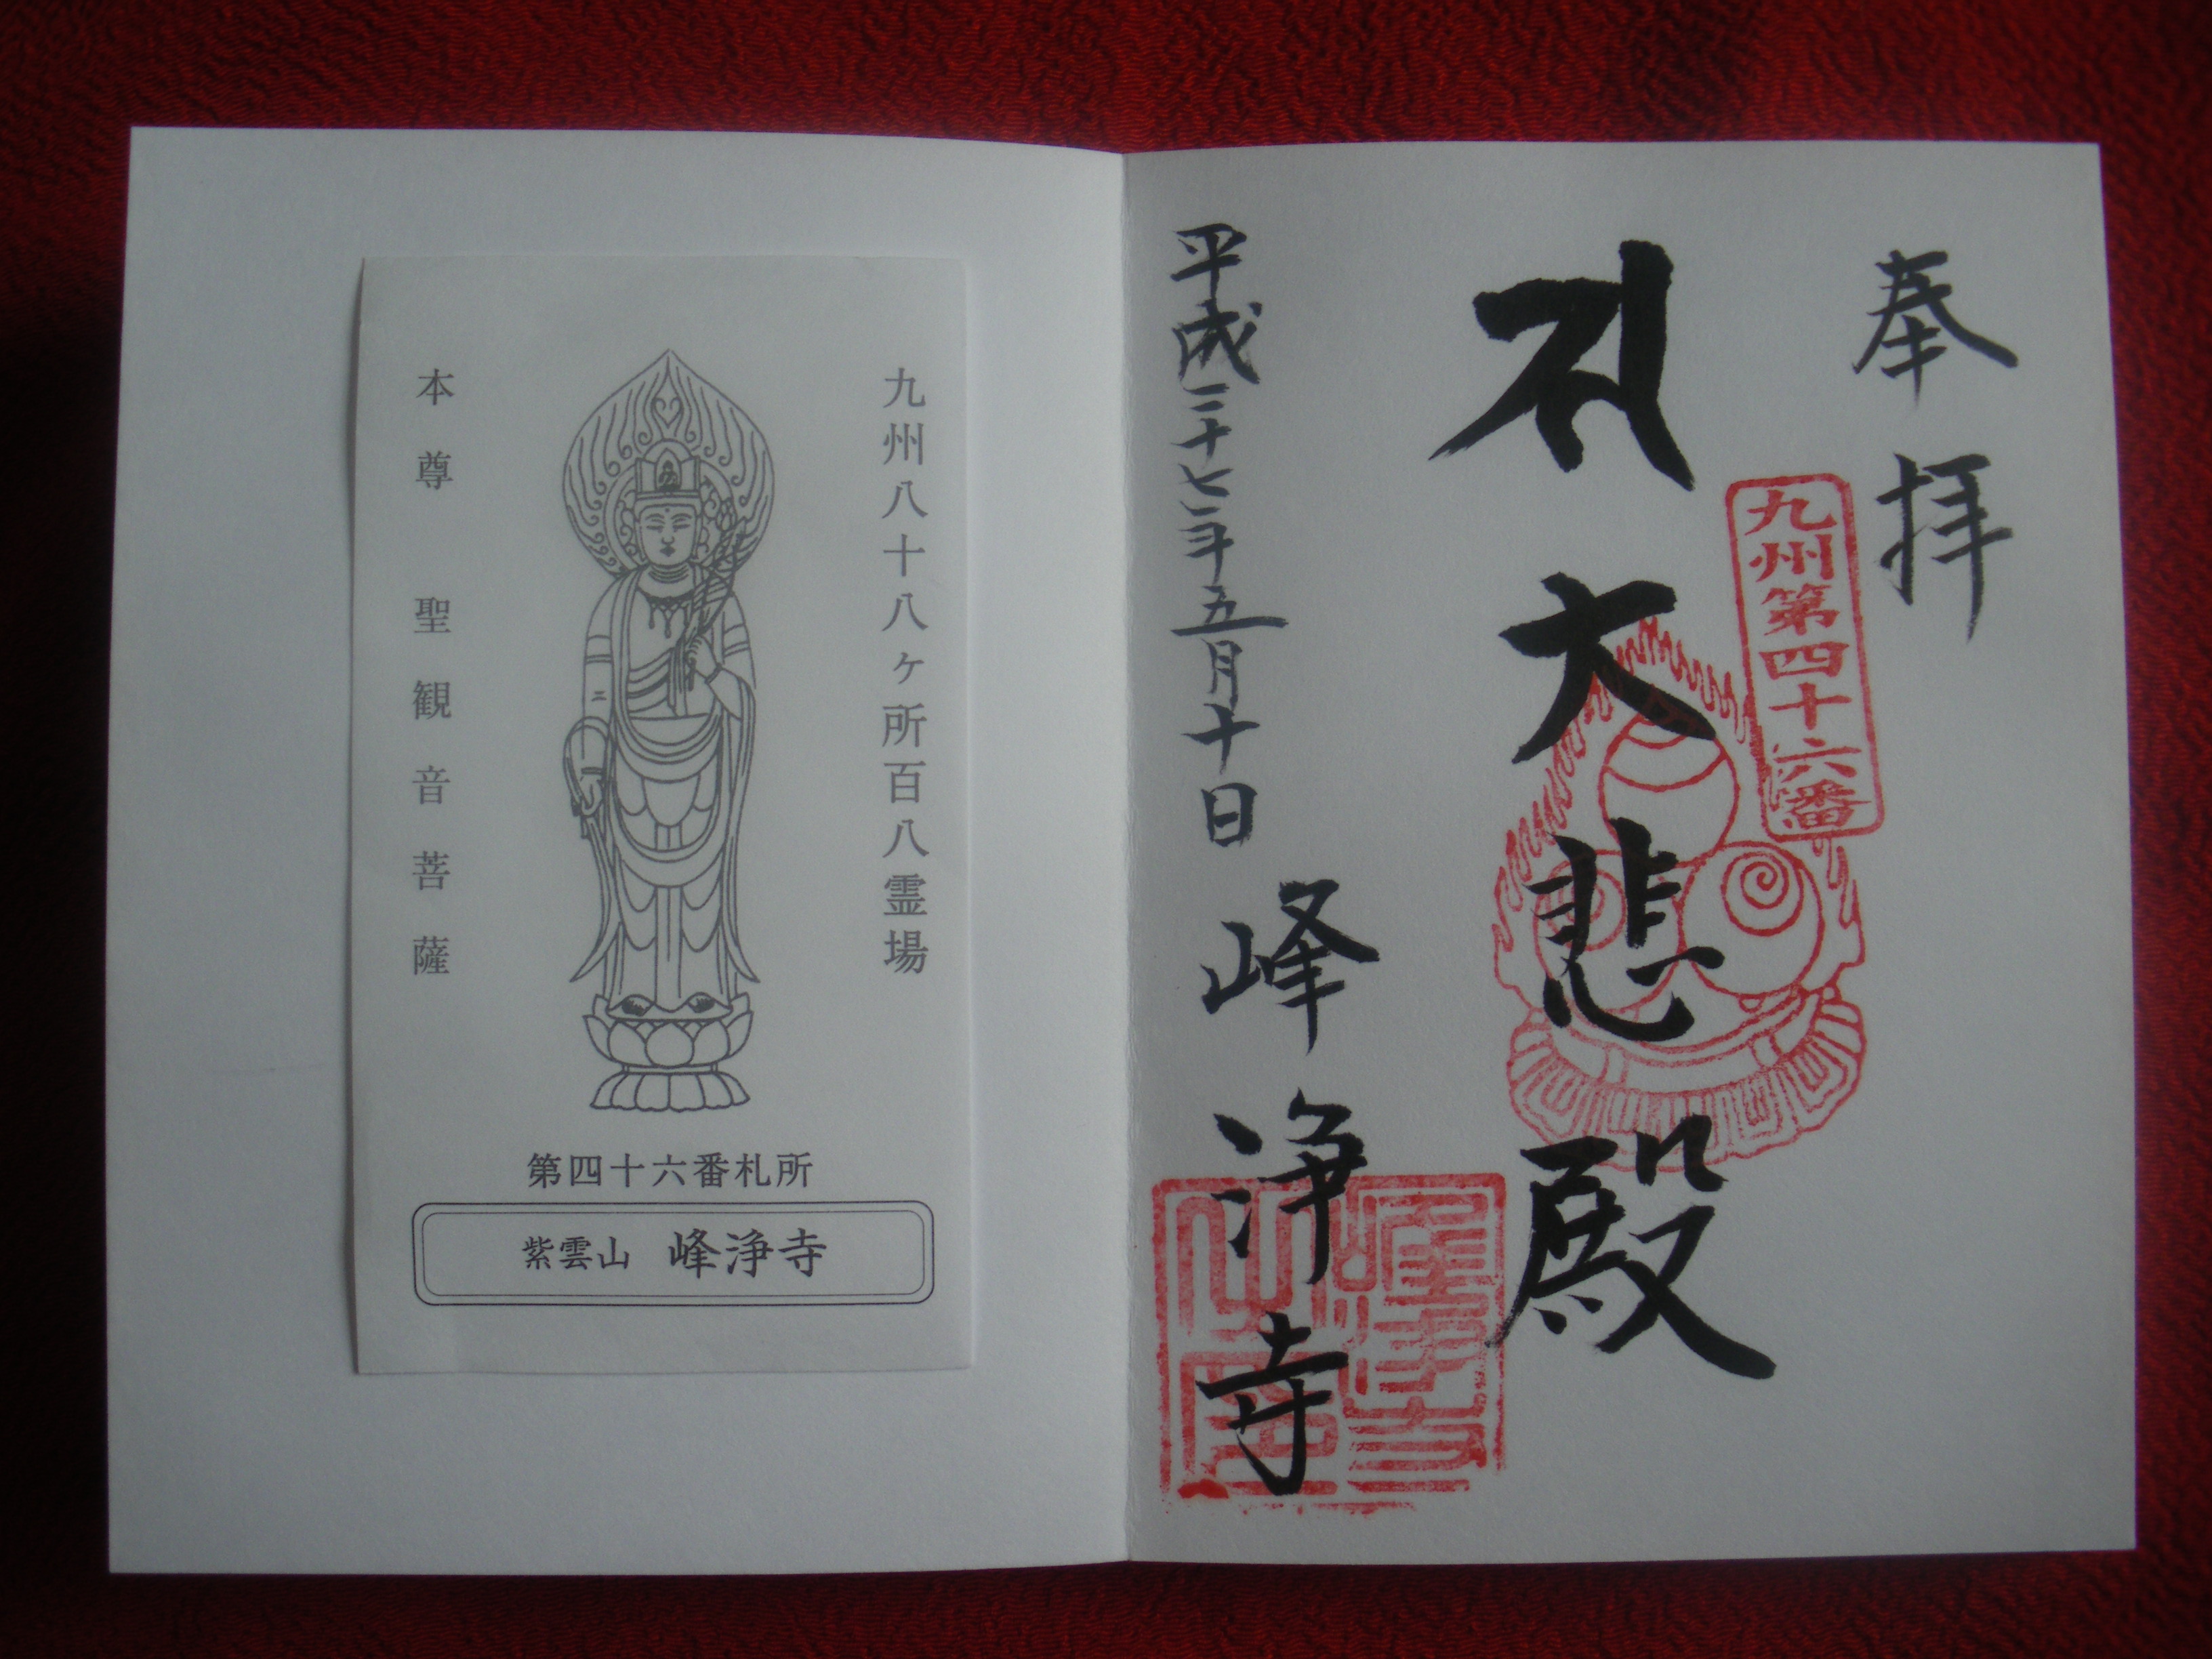 奉拝
九州第四十六番
大悲殿
平成二十七年五月十日
峰浄寺
九州八十八ヶ所百八霊場
本尊 聖観音菩薩
第四十六番札所
紫雲山 峰浄寺